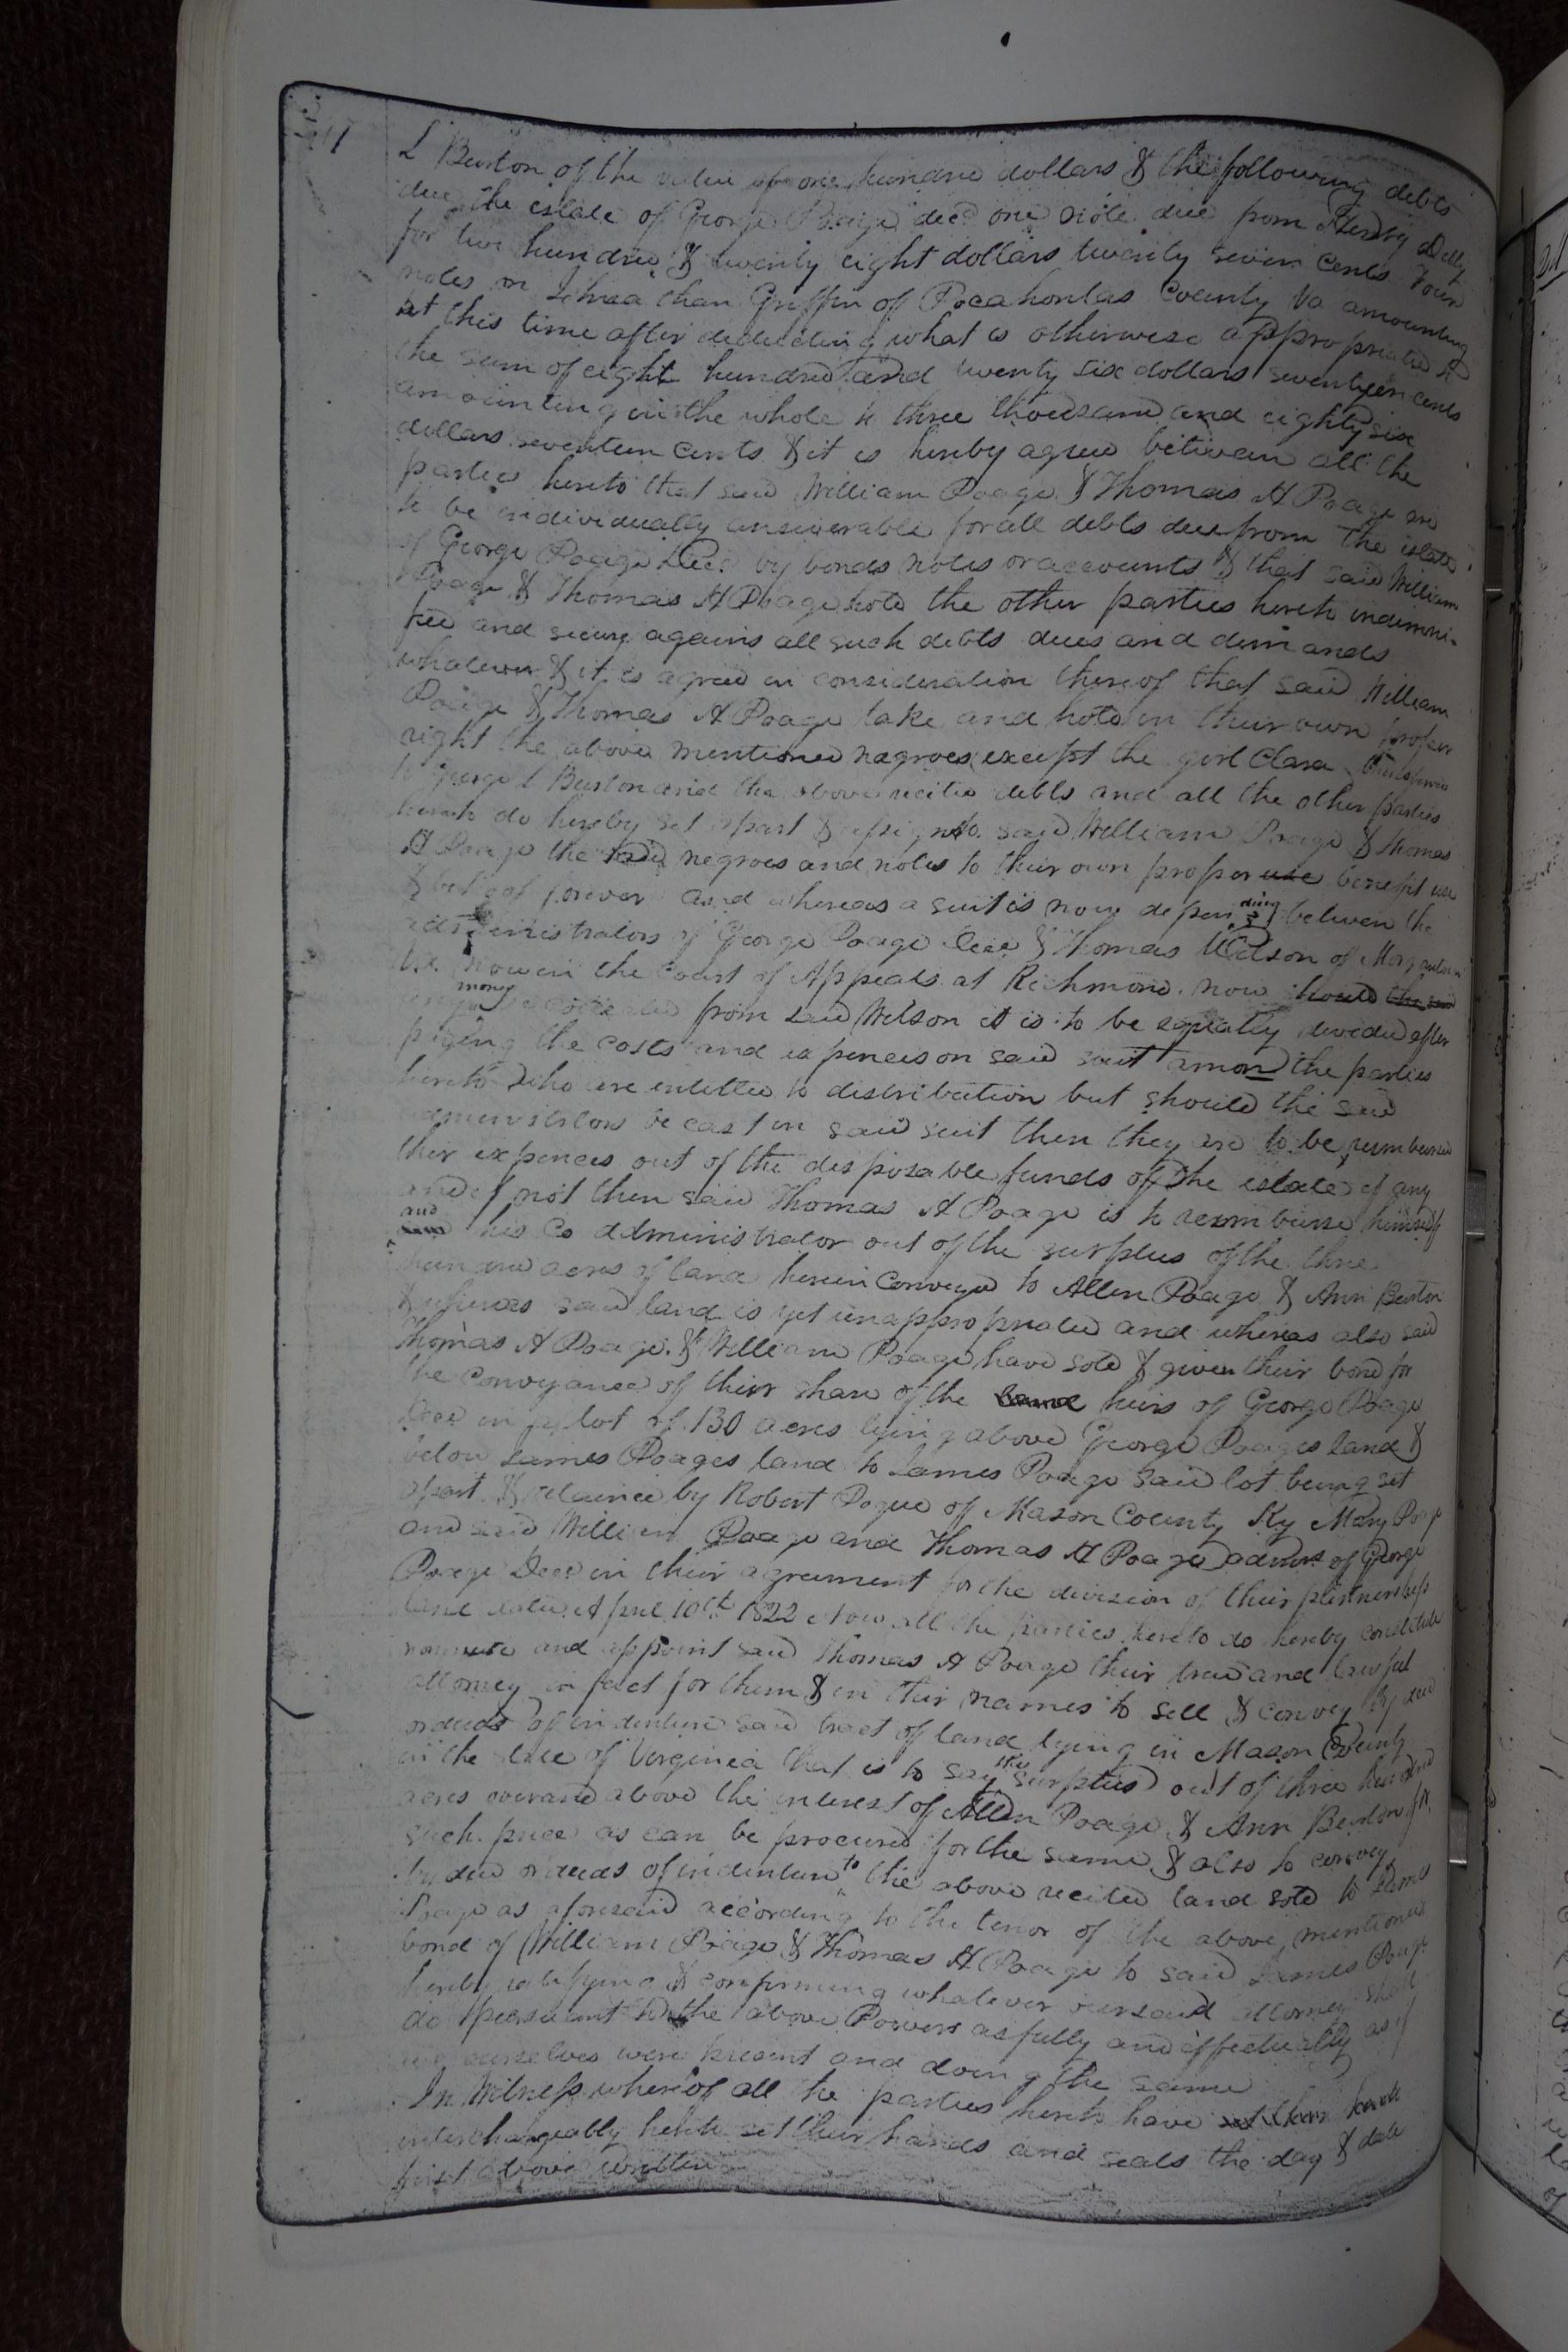 L Burton of the value of one hundred dollars & the following debts
due the estate of George Poage decd one note due from Henry
for two hundred & twenty eight dollars twenty seven cents Four
notes on Johnathan Griffin of Pocahontas County Va amounting
at this time after deducting what is otherwise appropriated to
the sum of eight hundred and twenty six dollars seventeen cents
amounting in the whole to three thousand and eighty six
dollars seventeen cents & it is hereby agreed between all the
parties hereto that said William Poage & Thomas H Poage are
to be individually answerable for all debts due from the estate
of George Poage Decd by bonds notes or accounts & that said William
Poage & Thomas H Poage hold the other parties hereto indemni-
fied and secure agains all such debts dues and demands
whatever & it is agreed in consideration thereof that said William
Poage & Thomas H Poage take and hold in their own proper
right the above mentioned negroes except the girl Clara
to George L Burton and the above recited debts and all the other parties
hereto do hereby set apart & assign to said William Poage & Thomas
H Poage the said negroes and notes to their own proper use benefit use
& behoof forever and whereas a suit is now depending between the
administrators of George Poage Decd & Thomas Wilson of Morgantown
Va now in the Court of Appeals at Richmond now should the said
money from said Wilson it is to be equally divided after
paying the costs and expences on said suit among the parties
hereto who are intitled to distribution but should the said
administrators be cast in said suit then they are to be reimbursed
their expences out of the disposable funds of the estate if any
and if not then said Thomas H Poage is to reimburse himself
and his Co administrator out of the surplus of the three
hundred acres of land herein conveyed to Allen Poage & Ann Burton
& whereas said land is yet unappropriated and whereas also said
Thomas H Poage & William Poage have sold & given their bond for
the conveyance of their share of the heirs of George Poage
Decd in lot of 130 acres lying above George Poages land &
below James Poages land to James Poage said lot being set
apart & retained by Robert Pogue of Mason County Ky Mary Poage
and said William Poage and Thomas H Poage admrs of George
Poage Decd in their agreement for the division of their partnership
land dated April 10th 1822 Now all the parties hereto do hereby constitute
nominate and appoint said Thomas H Poage their true and lawful
attorney in fact for them & in their names to sell & convey by deed
or deeds of indenture said tract of land lying in Mason County
in the state of Virginia that is to say the surplus out of three hundred
acres over and above the interest of Allen Poage & Ann Burton for
such price as can be procured for the same & also to convey
by deed or deeds of indenture to the above recited land sold to James
Poage as aforesaid according to the tenor of the above mentioned
bond of William Poage & Thomas H Poage to said James Poage
hereby ratifying & confirming whatever our said attorney shall
do persuant to the above Powers as fully and effectually as if
we ourselves were present and doing the same
In Witness whereof all the parties hereto have set their
interchangeably hereto set their hands and seals the day & date
first above written